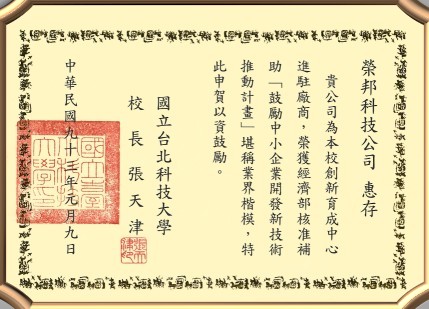 榮邦科技公司 惠存
貴公司為本校創新育成中心
進駐廠商，榮獲經濟部核准補
助「鼓勵中小企業開發新技術
推動計畫」堪稱業界楷模，特
此申賀以資鼓勵。
國立台北科技大學
校長 張天津
中華民國九十三年元月九日